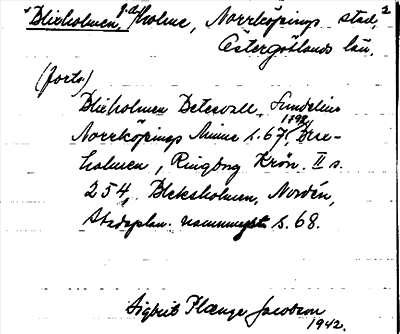 Blixholmen, f.d. holme, Norrköpings stad,
Östergötlands län.
(forts)
Blixholmen Beterwall. Sundelius
Norrköpings Minne s. 67, 1798, Brix-
holmen, Ringborg Krön. II s.
254, Bleksholmen, Nordén,
Stadsplan. namnmyst. s. 68.
Sigbrit Plænge Jacobson
1942.